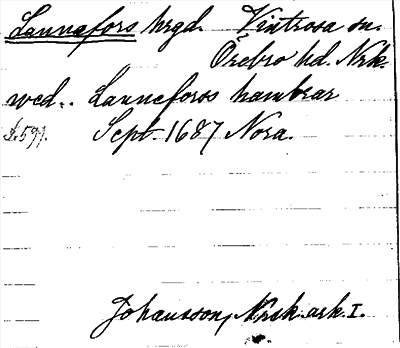 Lannafors hrgd. Vintrosa sn.
Örebro hd. Nrk.
wed.. Lanneforss hambrar
s. 591. Sept. 1687 Nora.
Johansson, Norsk ark. I.